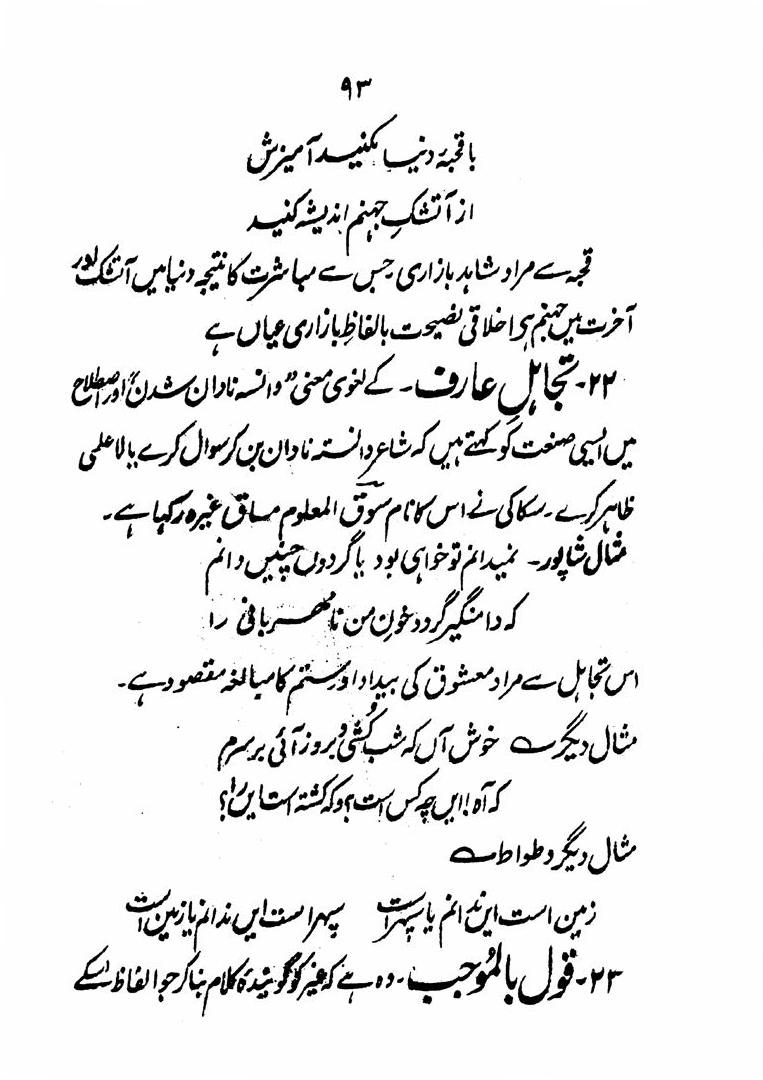 ۹۳
با قحبۂ دنیا مکنید آمیزش
از آتشکِ جہنم اندیشہ کنید
قحبہ سے مراد شاہد بازاری جس سے مباشرت کا نتیجہ دنیا میں آتشک اور
آخرت میں جہنم ہے اخلاقی نصیحت بالفاظِ بازاری عیاں ہے
۲۲۔ تجاہلِ عارف۔ کے لغوی معنی "دانستہ نادان شدن" اور اصطلاح
میں ایسی صنعت کو کہتے ہیں کہ شاعر دانستہ نادان بن کر سوال کرے یا لاعلمی
ظاہر کرے۔ سکاکی نے اس کا نام سَوقَ المعلوم مساق غیرہ رکھا ہے۔
مثال شاپور۔ نمیدانم تو خواہی بود یا گردوں چنیں دانم
کہ دامنگیر گردد خونِ من نامہربانی را
اس تجاہل سے مراد معشوق کی بیداد اور ستم کا مبالغہ مقصود ہے۔
مثال دیگر ؎ خوش آں کہ شب کُشی و بروز آئی بر سرم
کہ آہ! ایں چہ کس است؟ و کہ کشتہ است ایں را؟
مثال دیگر وطواط ؎
زمین است ایں ندانم یا سپہر است سپہر است ایں ندانم یا زمین است
۲۳۔ قول بالمُوجب۔ وہ ہے کہ غیر کو گویندۂ کلام بنا کر جو الفاظ اسکے